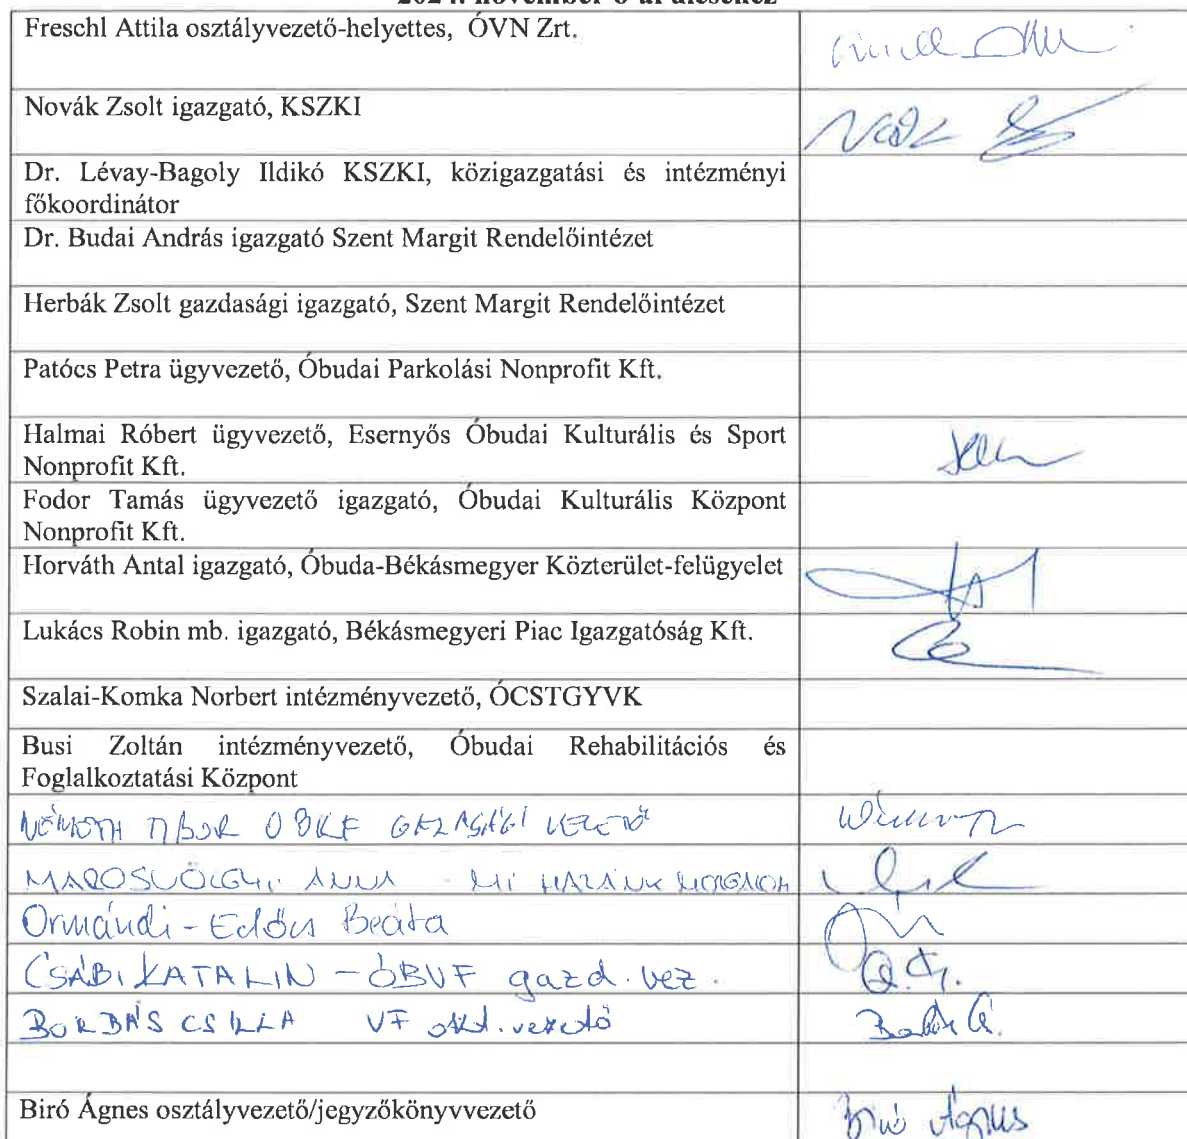 2024. november 6-ai üléséhez
Freschl Attila osztályvezető-helyettes, ÓVN Zrt.
Novák Zsolt igazgató, KSZKI
Dr. Lévay-Bagoly Ildikó KSZKI, közigazgatási és intézményi
főkoordinátor
Dr. Budai András igazgató Szent Margit Rendelőintézet
Herbák Zsolt gazdasági igazgató, Szent Margit Rendelőintézet
Patócs Petra ügyvezető, Óbudai Parkolási Nonprofit Kft.
Halmai Róbert ügyvezető, Esernyős Óbudai Kulturális és Sport
Nonprofit Kft.
Fodor Tamás ügyvezető igazgató, Óbudai Kulturális Központ
Nonprofit Kft.
Horváth Antal igazgató, Óbuda-Békásmegyer Közterület-felügyelet
Lukács Robin mb. igazgató, Békásmegyeri Piac Igazgatóság Kft.
Szalai-Komka Norbert intézményvezető, ÓCSTGYVK
Busi Zoltán intézményvezető, Óbudai Rehabilitációs és
Foglalkoztatási Központ
NÉMETH TIBOR ÓBKF GAZDASÁGI VEZETŐ
MAROSVÖLGYI ANNA - MI HAZÁNK MOZGALOM
Ormándi-Erdős Beáta
CSÁBI KATALIN - ÓBVF gazd. vez.
BORBÁS CSILLA VF okt. vezető
Biró Ágnes osztályvezető/jegyzőkönyvvezető Biró Ágnes